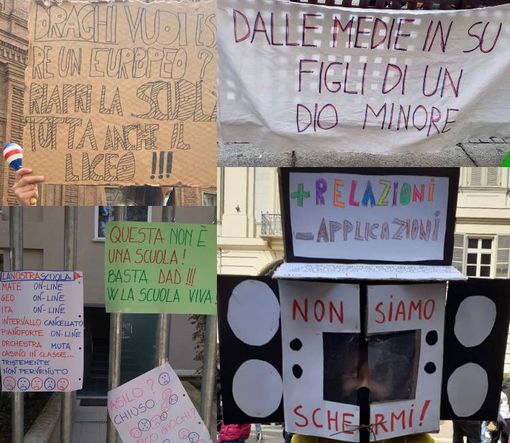 DRAGHI VUOI ES
RE UN EUROPEO ?
RIAPRI LA SCUOLA
TUTTA ANCHE IL
LICEO !!!
DALLE MEDIE IN SU
FIGLI DI UN
DIO MINORE
LA NOSTRA SCUOLA
MATE ON-LINE
GEO ON-LINE
ITA ON-LINE
INTERVALLO CANCELLATO
PIANOFORTE ON-LINE
ORCHESTRA MUTA
CASINO IN CLASSE...
TRISTEMENTE
NON PERVENUTO
QUESTA NON È
UNA SCUOLA!
BASTA DAD !!!
W LA SCUOLA VIVA!
ASILO?
CHIUSO
GIOCHI?
+ RELAZIONI
- APPLICAZIONI
NON SIAMO
SCHERMI!